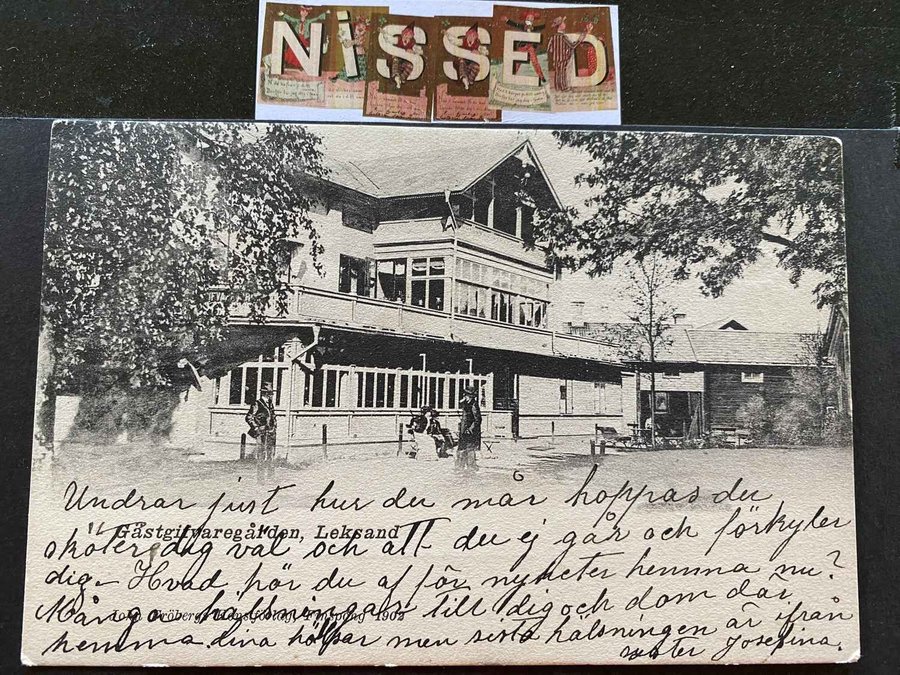 NISSED
Undrar just hur du mår hoppas du
Gästgifvaregården, Leksand
sköter dig väl och att du ej går och förkyler
dig. Hvad hör du af för nyheter hemma nu?
John Fröbergs Konstförlag, Finspong 1902
Många hälsningar till dig och dom där
hemma dina hoppas men sista hälsningen är ifrån
Josefina.